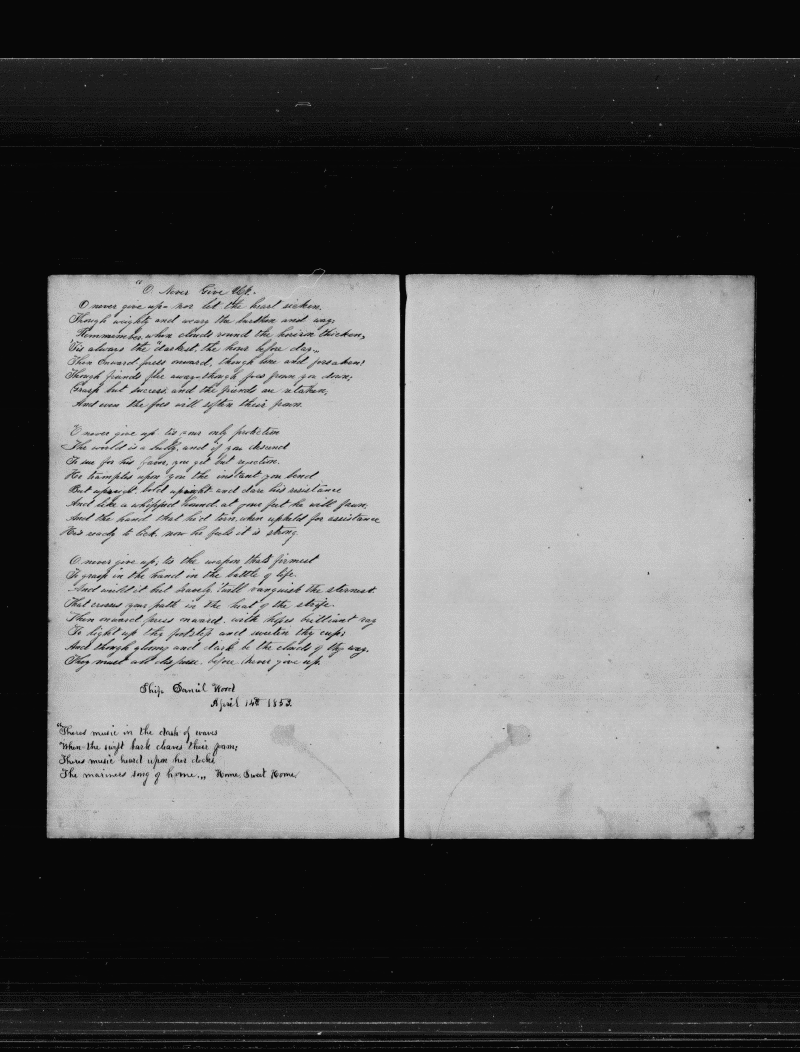 "O. Never Give Up.
O never give up nor let the heart sicken,
Though weighty and weary the burthen and way;
Remmember, when clouds round the horizon thicken,
'Tis always the "darkest, the hour before day,,
Then Onward press onward, though lone and forsaken;
Though friends flee away though foes frown you down;
Grasp but success, and the friends are retaken,
And even the foes will soften their frown.
O never give up, tis our only protection
The world is a bully, and if you descend
To sue for his favor, you get but rejection.
He tramples upon you the instant you bend
But upright, bold upright and dare his resistance
And like a whipped hound, at your feet he will fawn,
And the hand that he'd torn, when upheld for assistance
He's ready to lick, now he feels it is strong.
O never give up, tis the weapon thats firmest
To grasp in the hand in the battle of life.
And wield it but bravely, 'twill vanquish the sternest
That crosses your path in the heat of the strife.
Then onward press onward, with hopes brilliant ray
To light up thy footstep and sweeten thy cup;
And though gloomy and dark be the clouds of thy way,
They must all disperse, before never give up.
Ship Daniel Wood
April 14th 1853.
"Theres music in the dash of waves
When the swift bark cleaves their foam;
Theres music heard upon her decks
The mariners song of home.,, Home, Sweet Home,